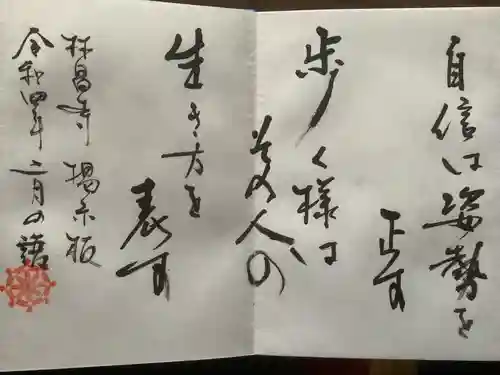 自信は姿勢を
正す
歩く様は
その人の
生き方を
表す
林昌寺 掲示板
令和四年 二月の語